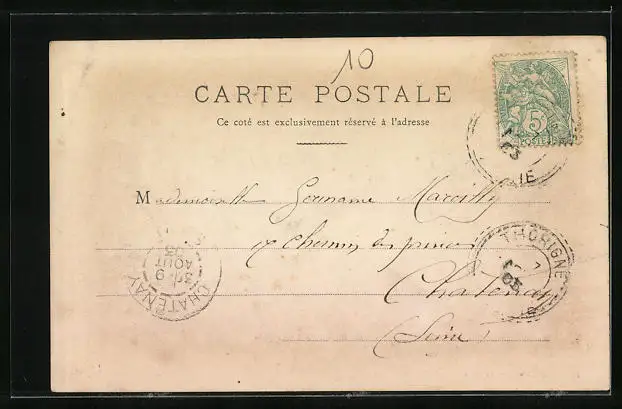 10
CARTE POSTALE
Ce coté est exclusivement réservé à l'adresse
5c
POSTES
Mademoiselle Germaine Marcilly
Chemin des princes
Chatenay
(Seine)
THORIGNÉ
CHATENAY
9
AOUT
03